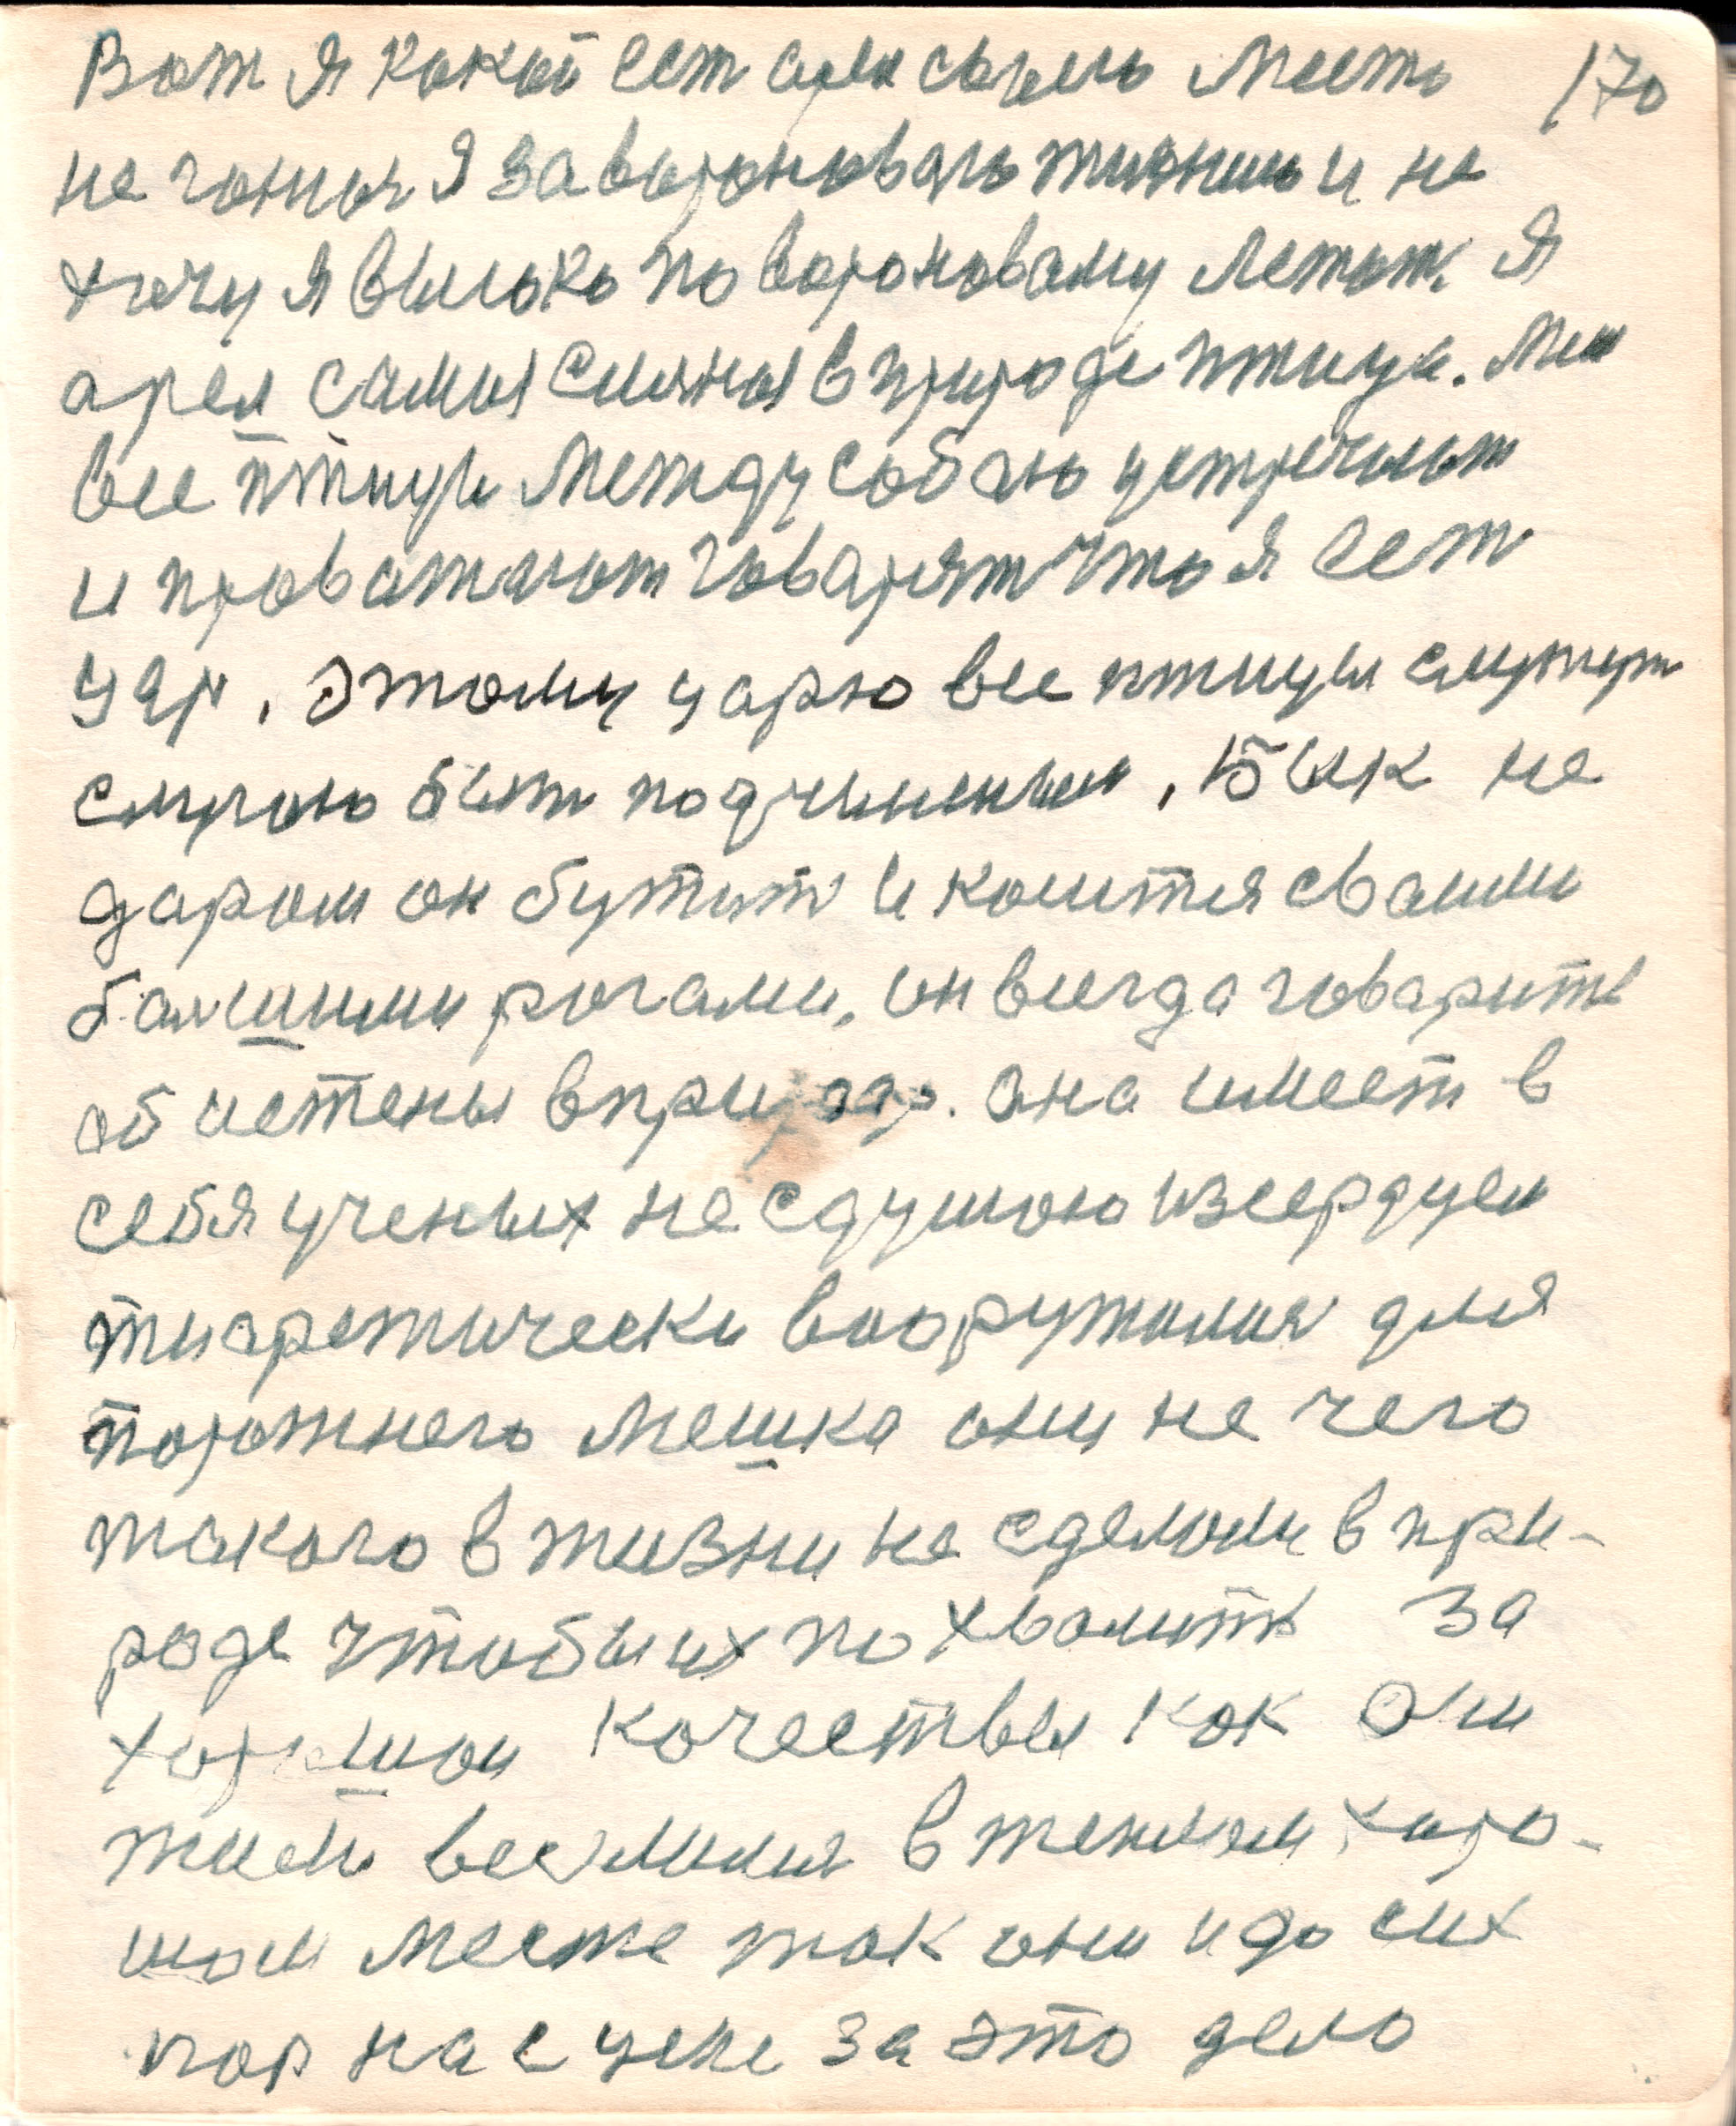 Вот я какой ест орел своего места 170
не гонюся я за вороновою жизнию и не
хочу я висько по вороновому летат. Я
арел самыя силныя в природе птица. Мы
все птицы между собою устречаем
и проважаем говарят что я ест
цар. Этому царю все птицы служут
слугою быт подчинении, Бик не
даром он бутит и колится своими
балшими рогами, он всегда говарить
об истены в природ. Она имеет в
себя ученых не с душою из сердцем
тиаретически вооружился для
порожнего мешка они не чего
такого в жизни не сделали в при-
роде чтобы их похвалить за
хорошои качествы как они
жили веемилия в теплом харо-
шом месте так они и до сих
пор на сцене за это дело